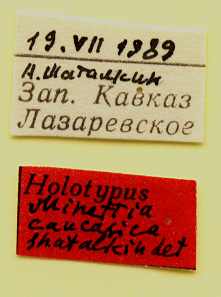 19. VII 1989
А. Шаталкин
Зап. Кавказ
Лазаревское
Holotypus
Minettia
caucasica
Shatalkin det